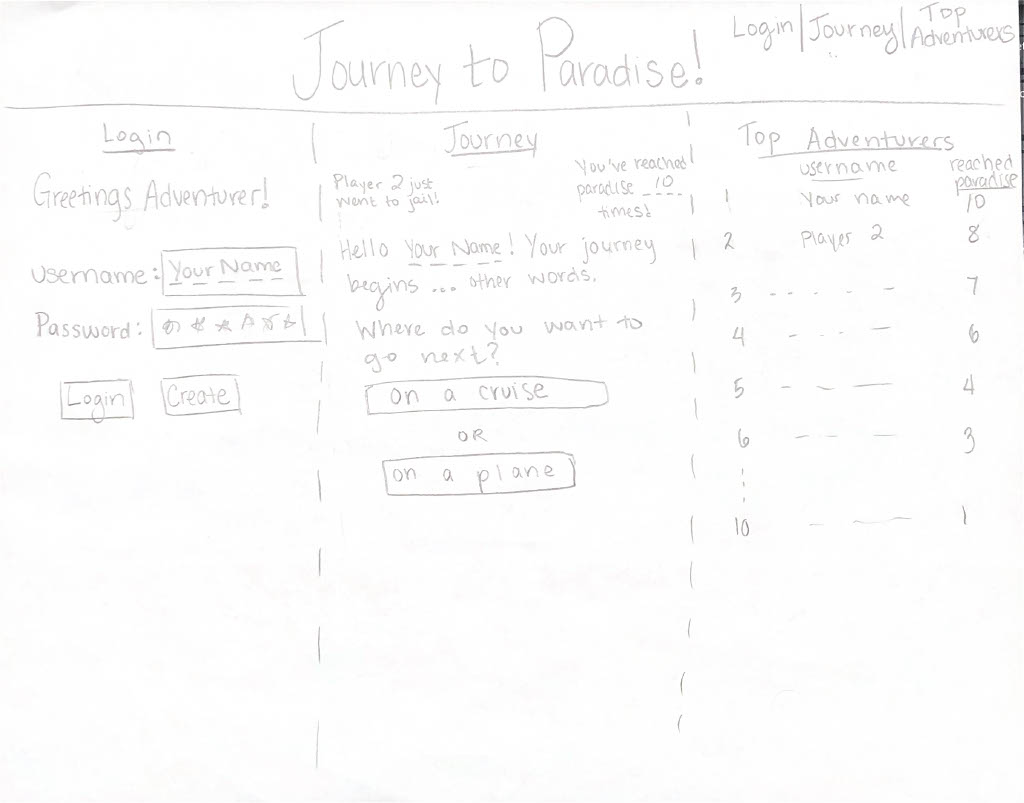 Journey to Paradise!
Login | Journey | Top Adventurers
Login
Greetings Adventurer!
Username: Your Name
Password: ******
Login Create
Journey
Player 2 just
went to jail!
You've reached
paradise 10
times!
Hello Your Name! Your journey
begins ... other words.
Where do you want to
go next?
on a cruise
OR
on a plane
Top Adventurers
username reached paradise
1 Your name 10
2 Player 2 8
3 - - - - - 7
4 - - - - 6
5 - - - 4
6 - - - 3
10 - - - 1